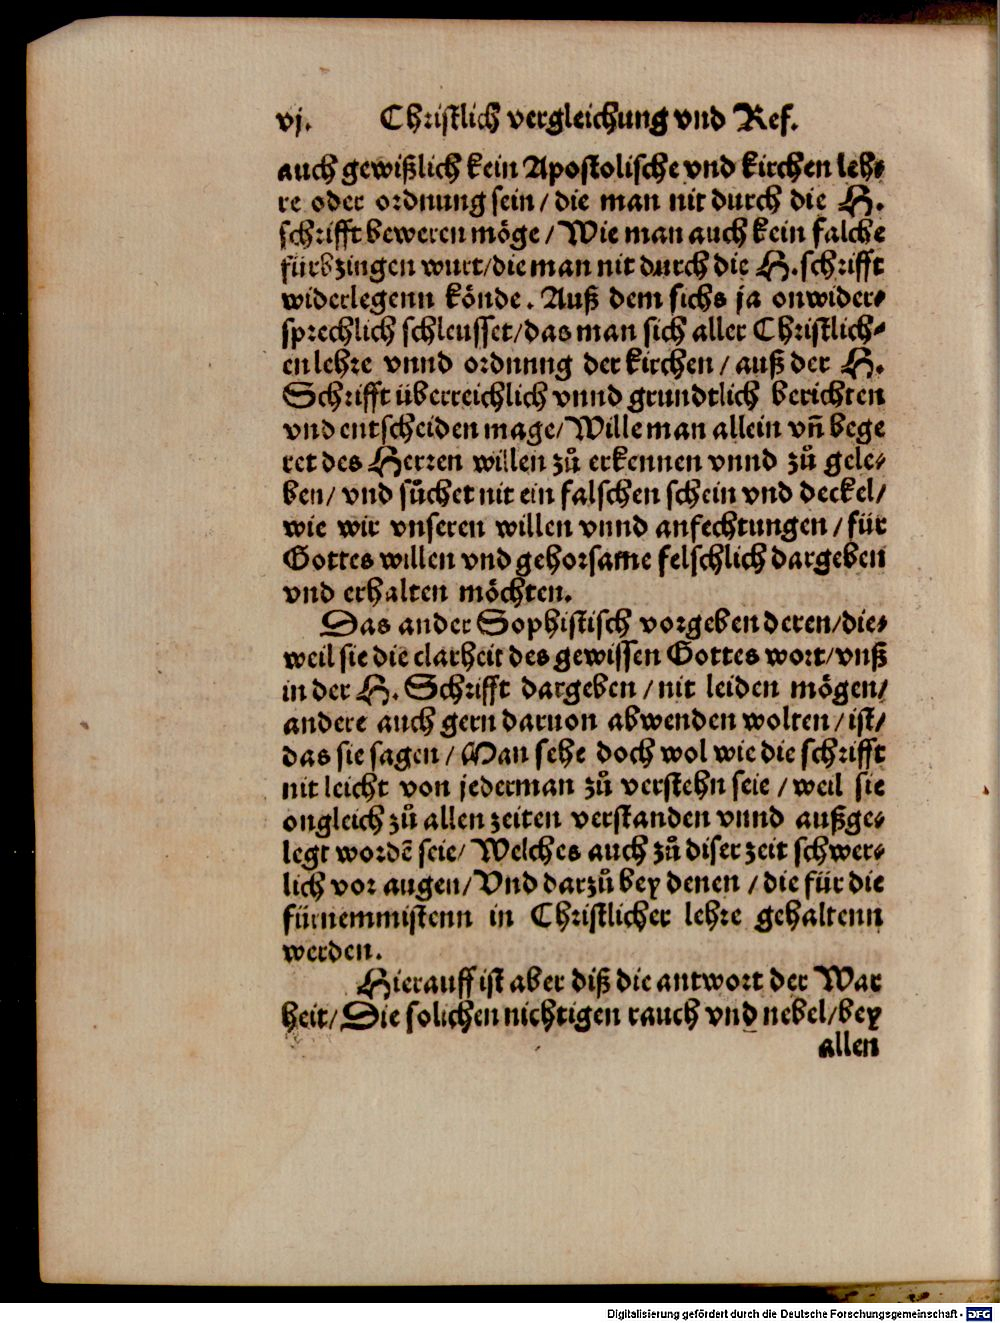 vj. Christlich vergleichung vnd Ref.
auch gewißlich kein Apostolische vnd kirchen leh-
re oder ordnung sein / die man nit durch die H.
schrifft beweren möge / Wie man auch kein falche
fürbringen wurt / die man nit durch die H. schrifft
widerlegenn könde. Auß dem sichs ja onwider-
sprechlich schleusset / das man sich aller Christlich-
en lehre vnnd ordnung der kirchen / auß der H.
Schrifft überreichlich vnnd grundtlich berichten
vnd entscheiden mage / Wille man allein vñ bege
ret des Herren willen zů erkennen vnnd zů gele-
ben / vnd sůchet nit ein falschen schein vnd deckel /
wie wir vnseren willen vnnd anfechtungen / für
Gottes willen vnd gehorsame felschlich dargeben
vnd erhalten möchten.
Das ander Sophistisch vorgeben deren / die-
weil sie die clarheit des gewissen Gottes wort / vnß
in der H. Schrifft dargeben / nit leiden mögen /
andere auch gern daruon abwenden wolten / ist /
das sie sagen / Man sehe doch wol wie die schrifft
nit leicht von jederman zů verstehn seie / weil sie
ongleich zů allen zeiten verstanden vnnd außge-
legt wordē seie / Welches auch zů diser zeit schwer-
lich vor augen / Vnd darzů bey denen / die für die
fürnemmistenn in Christlicher lehre gehaltenn
werden.
Hierauff ist aber diß die antwort der War
heit / Die solichen nichtigen rauch vnd nebel / bey
allen
Digitalisierung gefördert durch die Deutsche Forschungsgemeinschaft - DFG